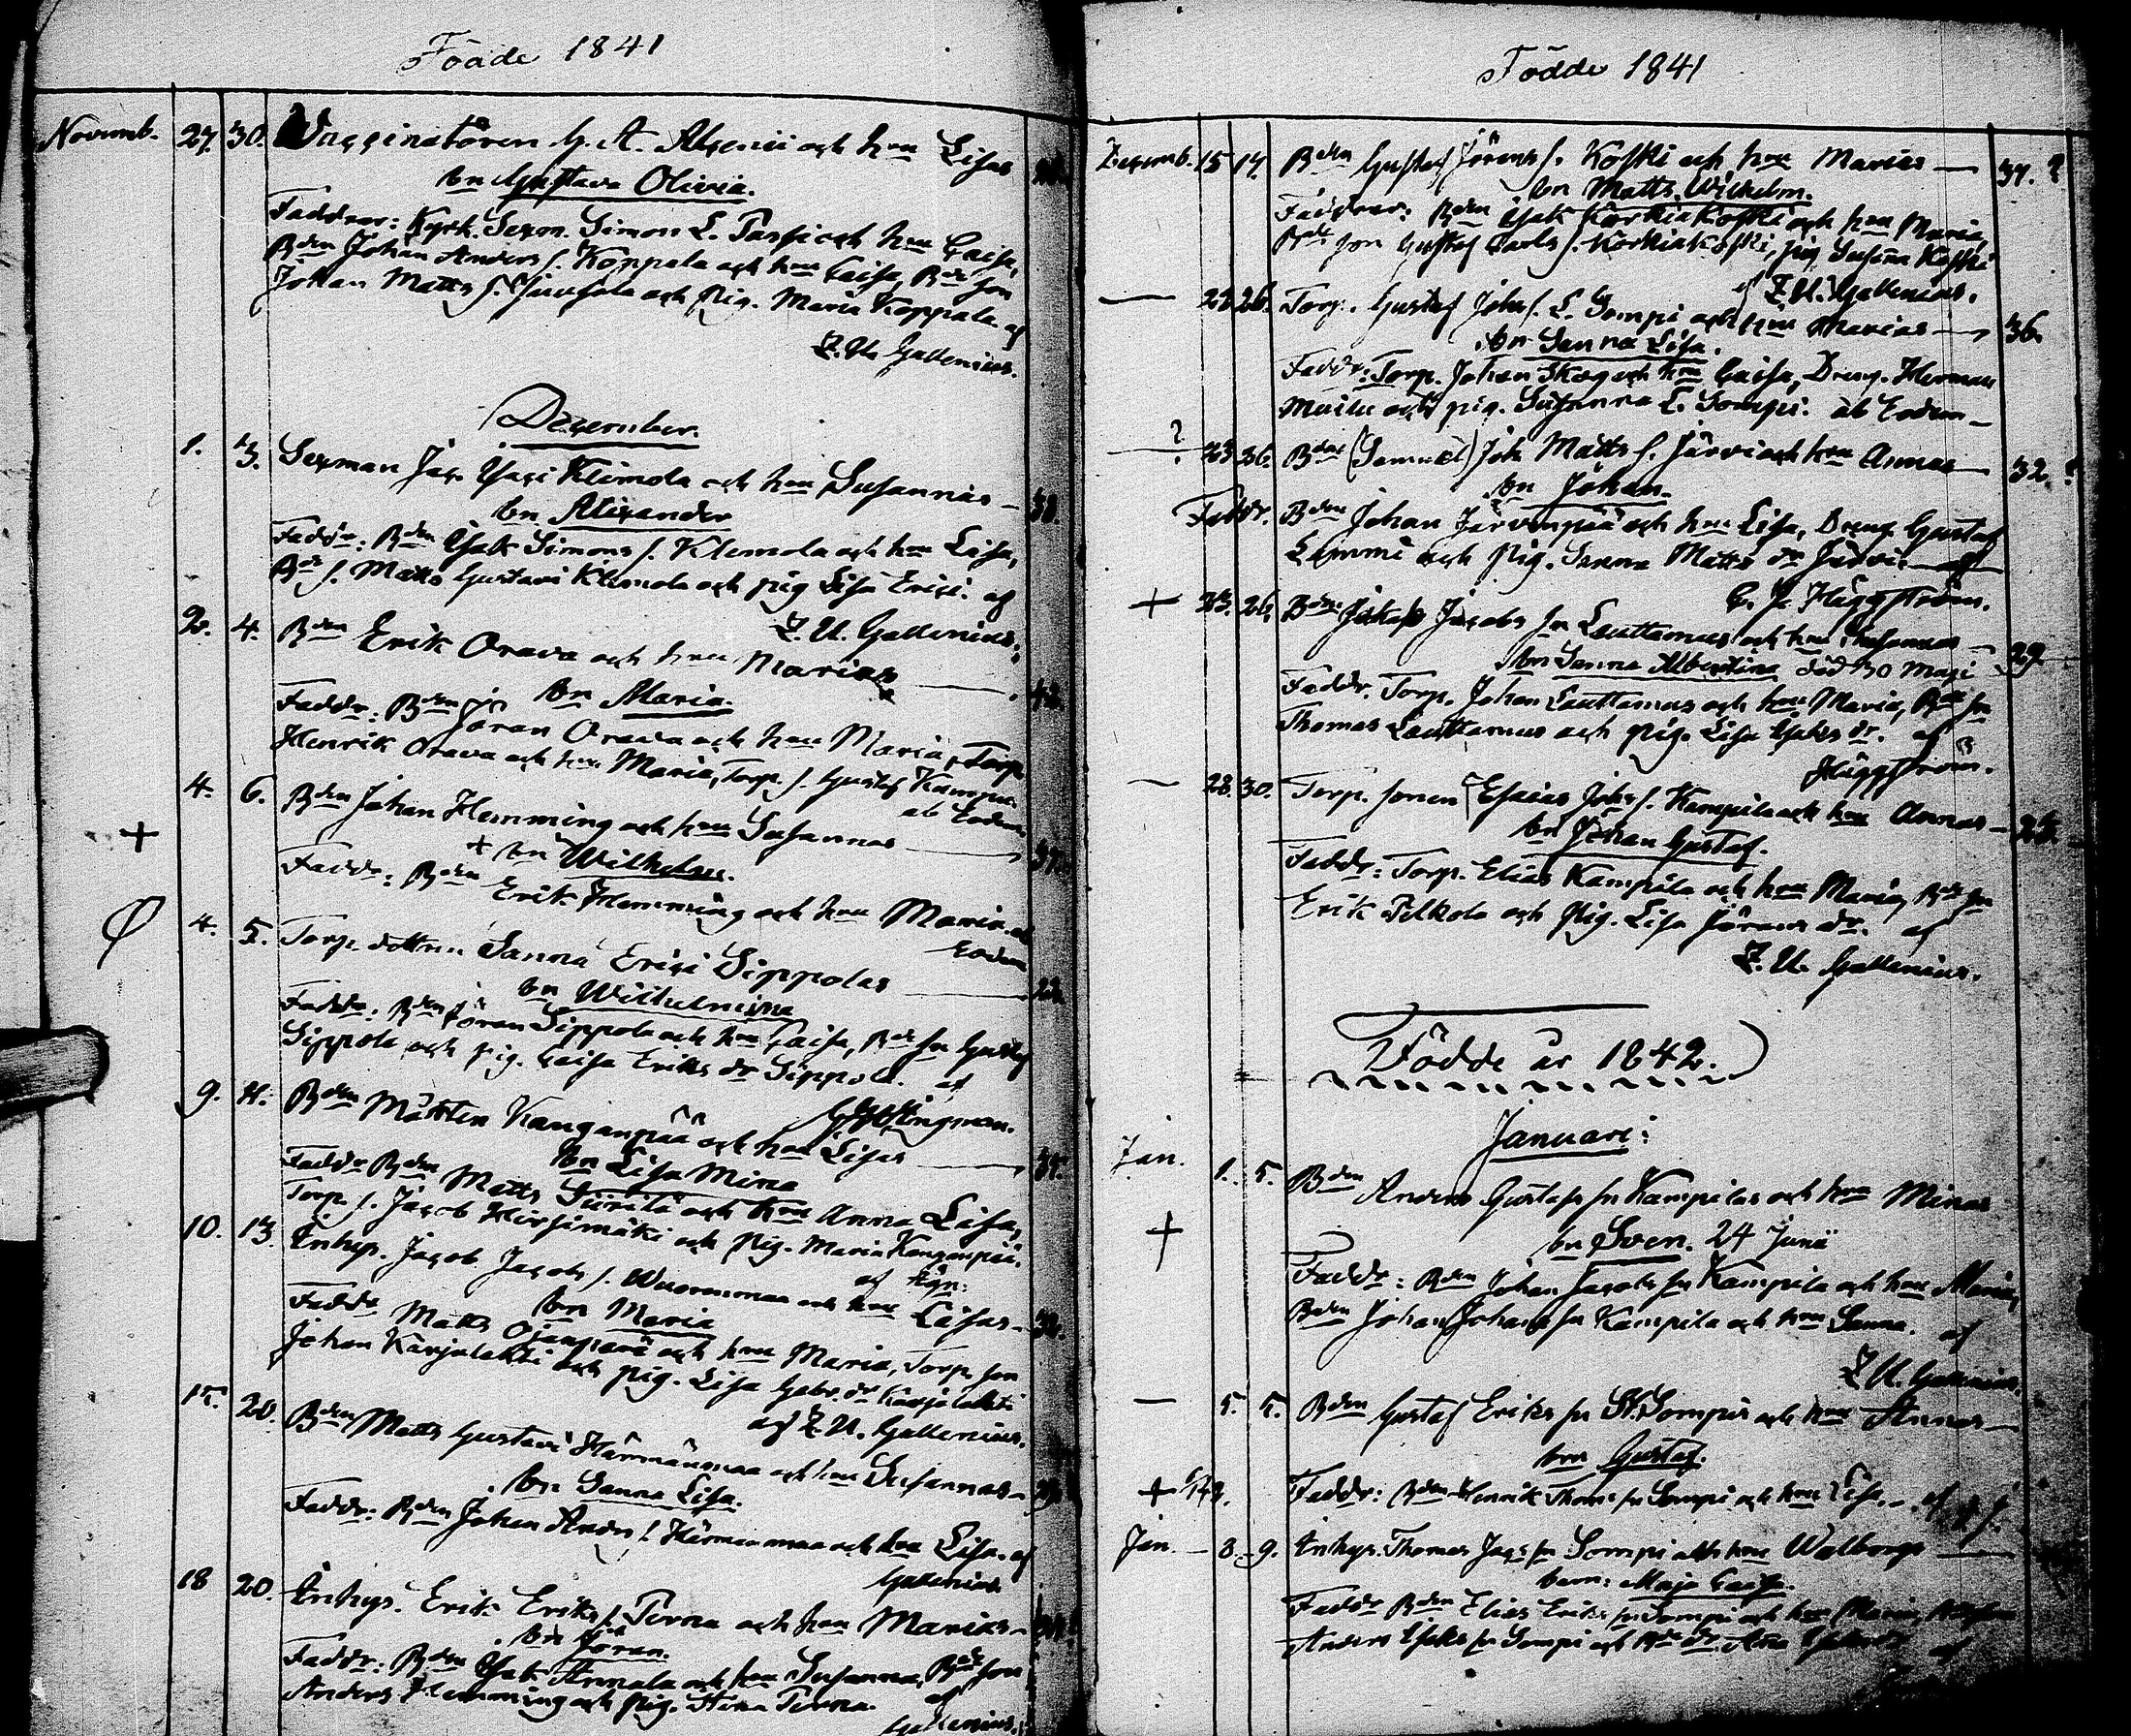 Födde 1841
Novemb. 27. 30. Vaccinatören G. A. Alcenii och hru Lisas
bn Gustava Olivia.
Faddrar: Kyrk. Sexm. Simon L. Passi och hru Caisa,
Bden Johan Anders s. Koppala och hru Caisa, Bde son
Johan Matts s. och pig. Maria Koppala. af
Z. U. Gallenius.
December.
1. 3. Sexman Jac. Isaci Klemola och hru Susannas — 38.
bn Alexander
Faddr: Bden Isak Simons s. Klemola och hru Lisa,
Bde s. Matts Gustavi Klemola och pig Lisa Erici. af
Z. U. Gallenius.
2. 4. Bden Erik Orava och hru Marias — 42.
bn Maria.
Faddr: Bden Jöran Orava och hru Maria, Torp.
Henrik Orava och hru Maria, Torp. s. Gustaf
ab Eodem
4. 6. Bden Johan Hemming och hru Susannas — 37.
+ + bn
Faddr: Bden Erik Hemming och hru Maria. ab
Eodem
4. 5. Torp. dottren Sanna Erici Sippolas — 22.
bn Wilhelmina
Faddr: Bden Jöran Sippola och hru Caisa, Bde sn Gustaf
Sippola och pig. Caisa Eriks dr Sippola. af
9. 11. Bden Mårten Kanganpää och hru Lisas
bn Lisa Mina
Faddr Bden Matts och hru Anna Lisa,
Torp. s. Jacob Hirsimäki och pig. Maria Kanganpää.
af
10. 13. Inhys. Jacob Jacobs s. Wuorenmaa och hru Caisas — 32.
bn Maria
Faddr Matts Ojanperä och hru Maria, Torp. son
Johan Karjalahti och pig. Lisa Gabr. dr Karjalahti
af Z. U. Gallenius.
20. Bden Matts Gustavi Härmänmaa och hru Susannas —
bn Sanna Lisa.
Faddr: Bden Johan Andrs s. Härmänmaa och hru Lisa. af
Gallenius
18 20. Inhys. Erik Eriks s. Perna och hru Marias —
bn Jöran.
Faddr: Bden Isak Annala och hru Susanna, Bde son
Anders Hemming och pig. Stina Perna. af
Gallenius.
Födde 1841
Decemb. 15 17. Bden Gustaf Jörans s. Koski och hru Marias — 37. ?
bn Matts Wilhelm.
Faddrar: Bden Isak Korkiakoski och hru Maria,
Bde son Gustaf Carls s. Korkiakoski, pig Susanna Koski
af Z. U. Gallenius.
— 26. Torp. Gustaf Johs s. L. Sompi och hru Marias — 36.
bn Sanna Lisa.
Faddr: Torp. Johan Skog och hru Caisa, Dreng. Herman
och pig. Susanna L. Sompi. ab Eodem —
? 23 26. Bden (Samuel) Joh Matts s. Järvi och hru Annas — 32. ?
bn Johan.
Faddr. Bden Johan Järvenpää och hru Lisa, Dreng Gustaf
Lammi och pig. Sanna Matts dr Järvi — af
Häggström.
+ 23. 26. Bden Jacobs sn Lauttamus och hru Susannas — 29
bn Sanna Albertina död 30 Maji
Faddr. Torp. Johan Lauttamus och hru Maria, Bde sn
Thomas Lauttamus och pig. Lisa Isaks dr. af
Häggström.
— 28. 30. Torp. sonen Esaias Johs s. Kampila och hru Annas —
bn Johan Gustaf.
Faddr: Torp. Elias Kampila och hru Maria, Bde sn
Erik Pelkola och pig. Lisa Jörans dr. af
Z. U. Gallenius.
Födde år 1842.
Januari:
Jan. 1. 5. Bden Anders Gustafs sn Kampilas och hru Minas
+ bn Sven. 24 Junii
Faddr: Bden Johan Jacobs sn Kampila och hru Maria,
Bden Johan Johans sn Kampila och hru Sanna. af
Z. U. Gallenius.
— 5. 5. Bden Gustaf Eriks sn St. Sompis och hru Annas —
bn Gustaf.
+ Faddr: Bden Henrik Thoms sn Sompi och hru Lisa. — af
Jan. — 8. 9. Inhys. Thomas Jacs sn Sompi och hru Walborgs —
barn: Maja Caisa.
Faddr Bden Elias Eriks sn Sompi och hru Maria,
Anders Isaks sn Sompi och af